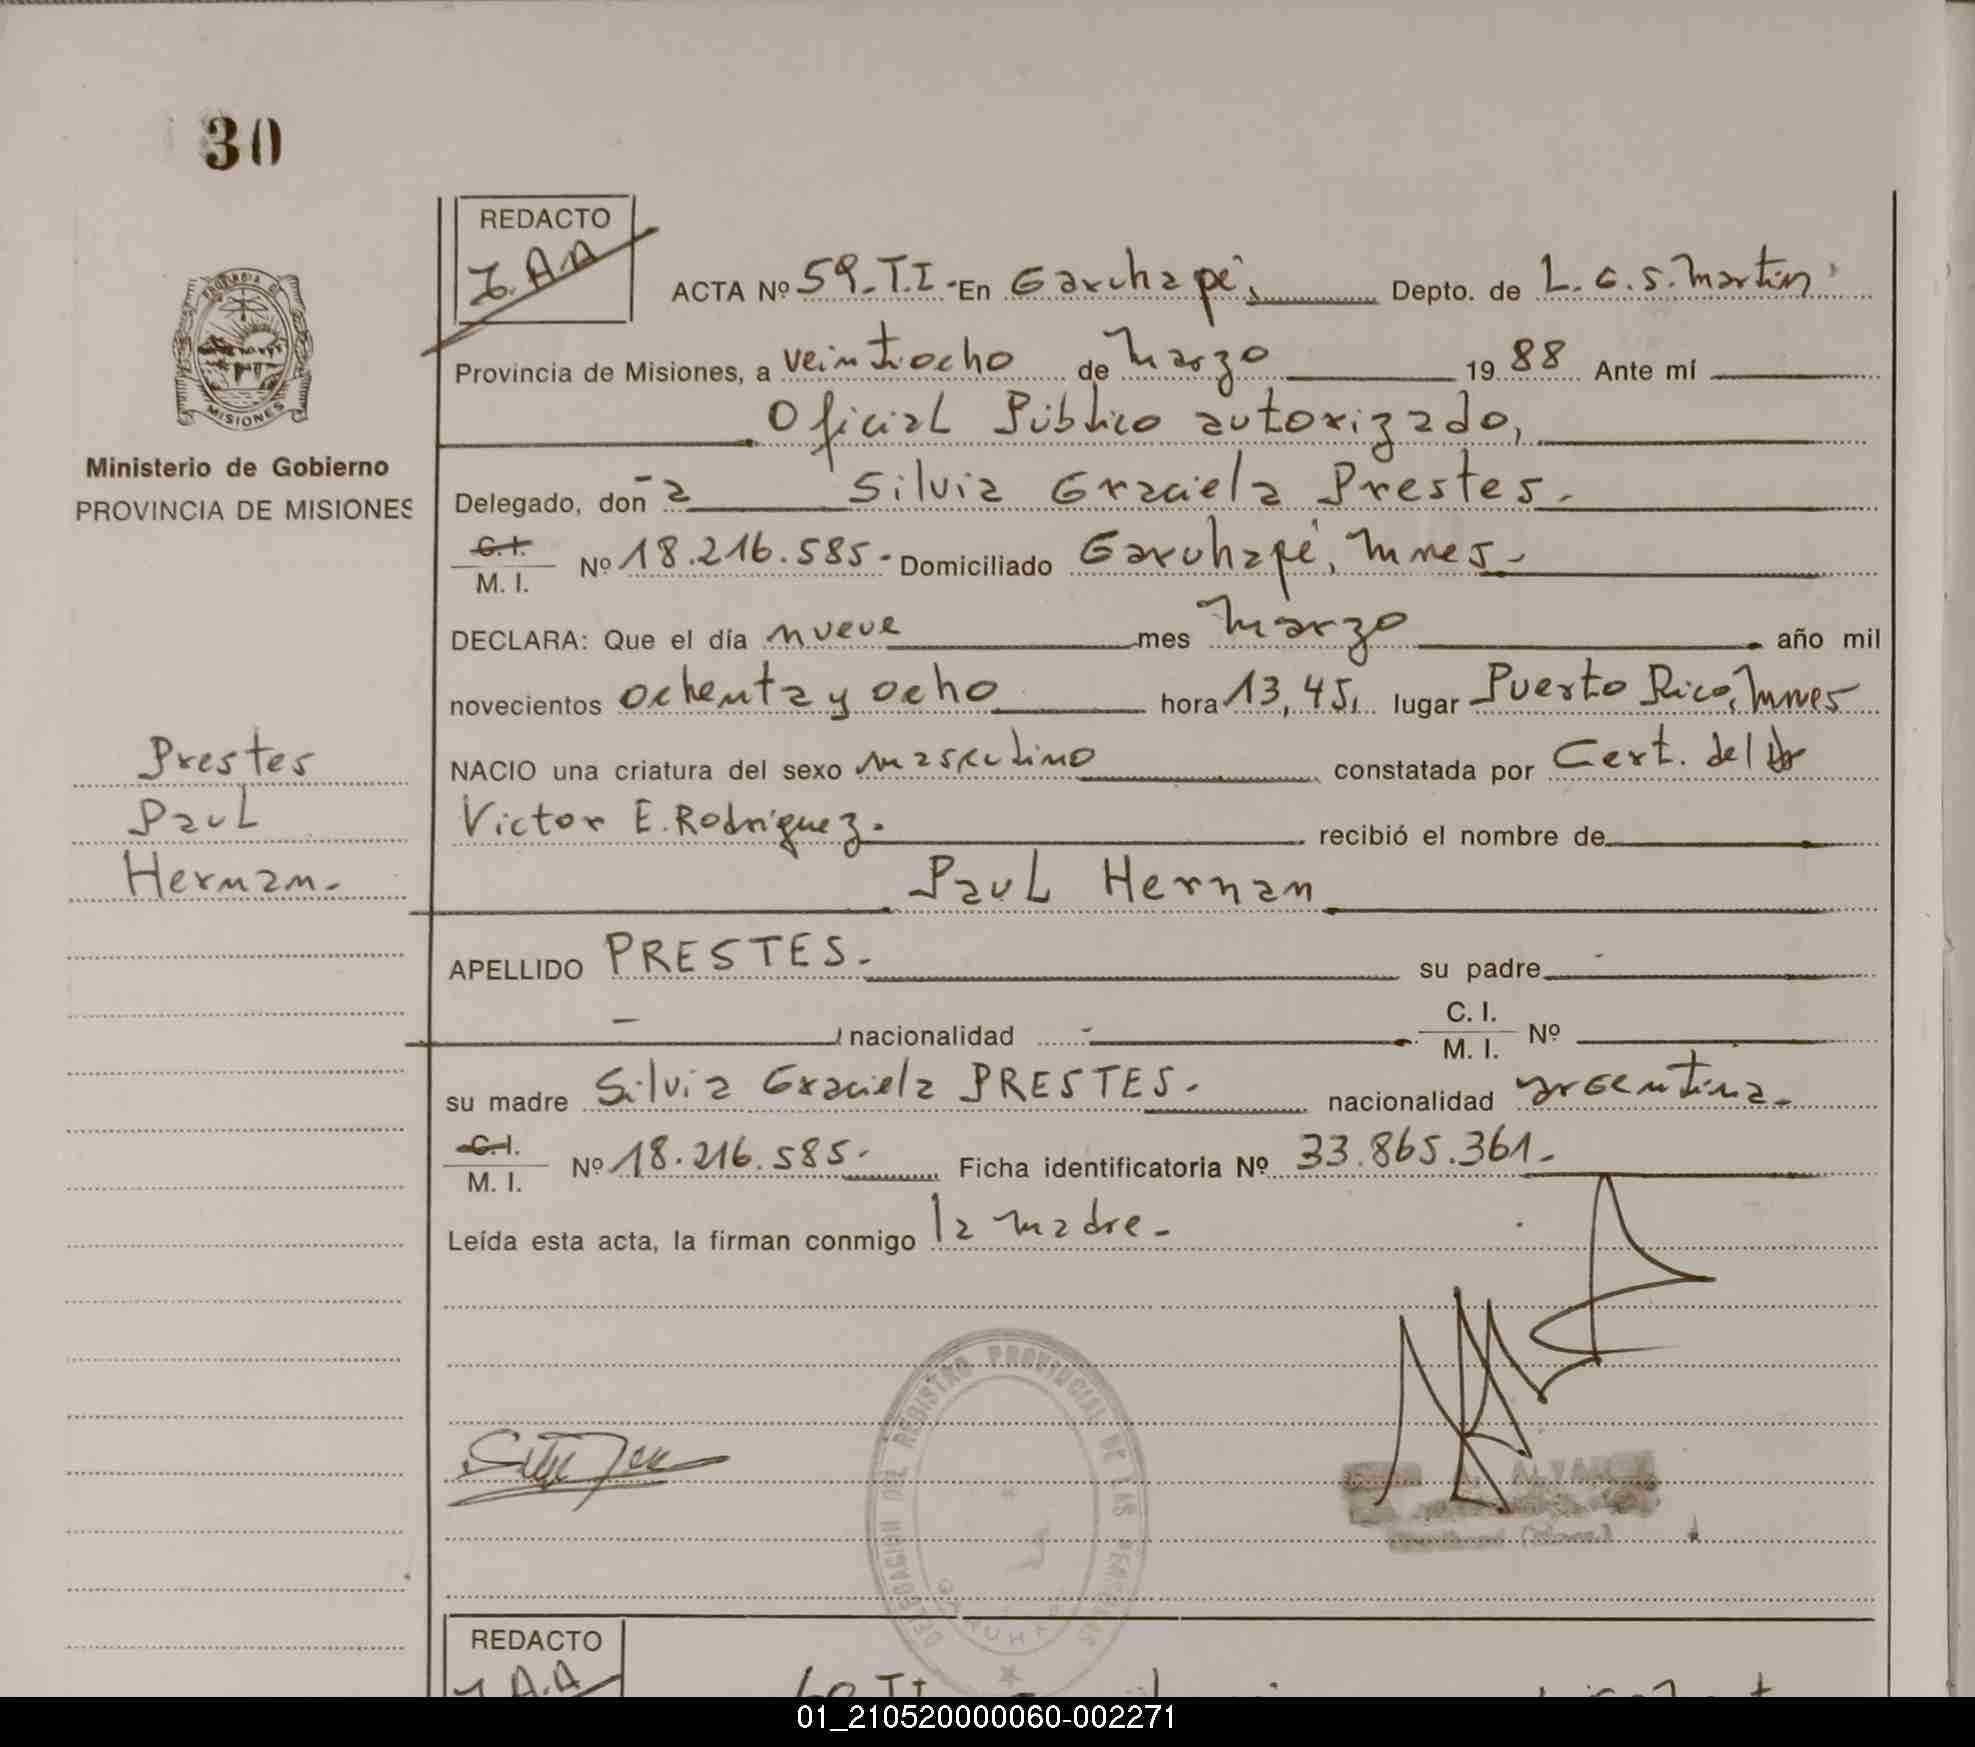 30
REDACTO
J.A.A
ACTA Nº 59-T.I.- En Garuhapé, Depto. de L.G.S.Martín
Provincia de Misiones, a veintiocho de Marzo 19 88 Ante mí
Oficial Público autorizado,
Delegado, don -a Silvia Graciela Prestes.
C.I. M.I. Nº 18.216.585.- Domiciliado Garuhapé, Mnes-
DECLARA: Que el día nueve mes Marzo año mil
novecientos ochenta y ocho hora 13,45, lugar Puerto Rico, Mnes
NACIO una criatura del sexo masculino constatada por Cert. del Dr
Victor E. Rodriguez. recibió el nombre de
Paul Hernan
APELLIDO PRESTES.- su padre -
- nacionalidad - C.I. M.I. Nº
su madre Silvia Graciela PRESTES.- nacionalidad argentina.-
C.I. M.I. Nº 18.216.585.- Ficha identificatoria Nº 33.865.361.-
Leída esta acta, la firman conmigo la madre.-
PROVINCIA DE MISIONES
Ministerio de Gobierno
PROVINCIA DE MISIONES
Prestes
Paul
Hernan.-
DELEGACION DEL REGISTRO PROVINCIAL DE LAS PERSONAS
REDACTO
J.A.A
60-T.I
01_210520000060-002271